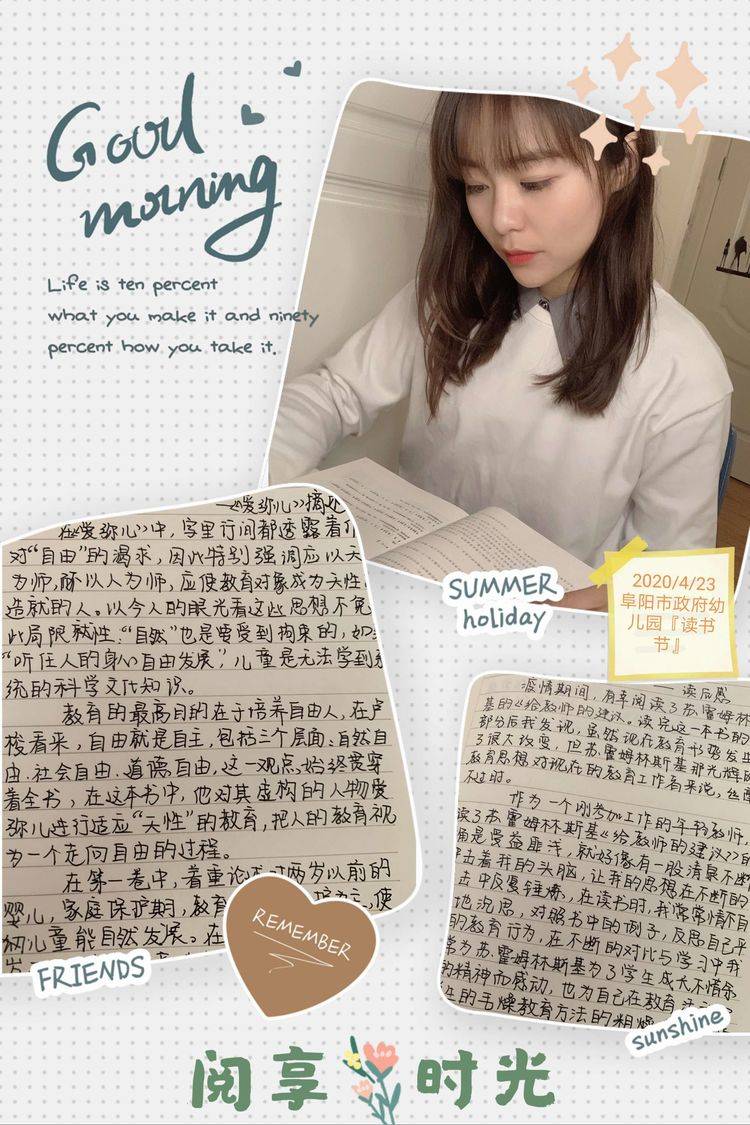 Good
morning
Life is ten percent
what you make it and ninety
percent how you take it.
SUMMER
holiday
2020/4/23
阜阳市政府幼
儿园『读书
节』
《爱弥儿》摘
在《爱弥儿》中，字里行间都透露着
对“自由”的渴求，因此特别强调应以天
为师，以人为师，应使教育对象成为天性
造就的人。以今人的眼光看这些思想不免
此局限就性，“自然”也是要受到拘束的，如
“听任人的身心自由发展”，儿童是无法学到系
统的科学文化知识。
教育的最高目的在于培养自由人，在卢
梭看来，自由就是自主，包括三个层面：自然自
由、社会自由、道德自由，这一观点始终贯穿
着全书，在这本书中，他对其虚构的人物爱
弥儿进行适应“天性”的教育，把人的教育视
为一个走向自由的过程。
在第一卷中，着重论述对两岁以前的
婴儿，家庭保护期，教育 为主，使
幼儿童能自然发展。在
FRIENDS
REMEMBER
——读后感
疫情期间，有幸阅读了苏霍姆林
基的《给教师的建议》。读完这一本书的
部分后我发现，虽然现在教育形势发生
了很大改变，但苏霍姆林斯基那光辉的
教育思想对现在的教育工作者来说，丝
不过时。
作为一个刚参加工作的年轻教师，
读了苏霍姆林斯基《给教师的建议》的
确是受益匪浅，就好像有一股清泉不断
击着我的头脑，让我的思想在不断的
击中反复锤炼，在读书时，我常常情不自
地沉思，对照书中的例子，反思自己平
的教育行为，在不断的对比与学习中我
常为苏霍姆林斯基为了学生成长不惜余
的精神而感动，也为自己在教育
的毛燥教育方法的粗糙
sunshine
阅享时光